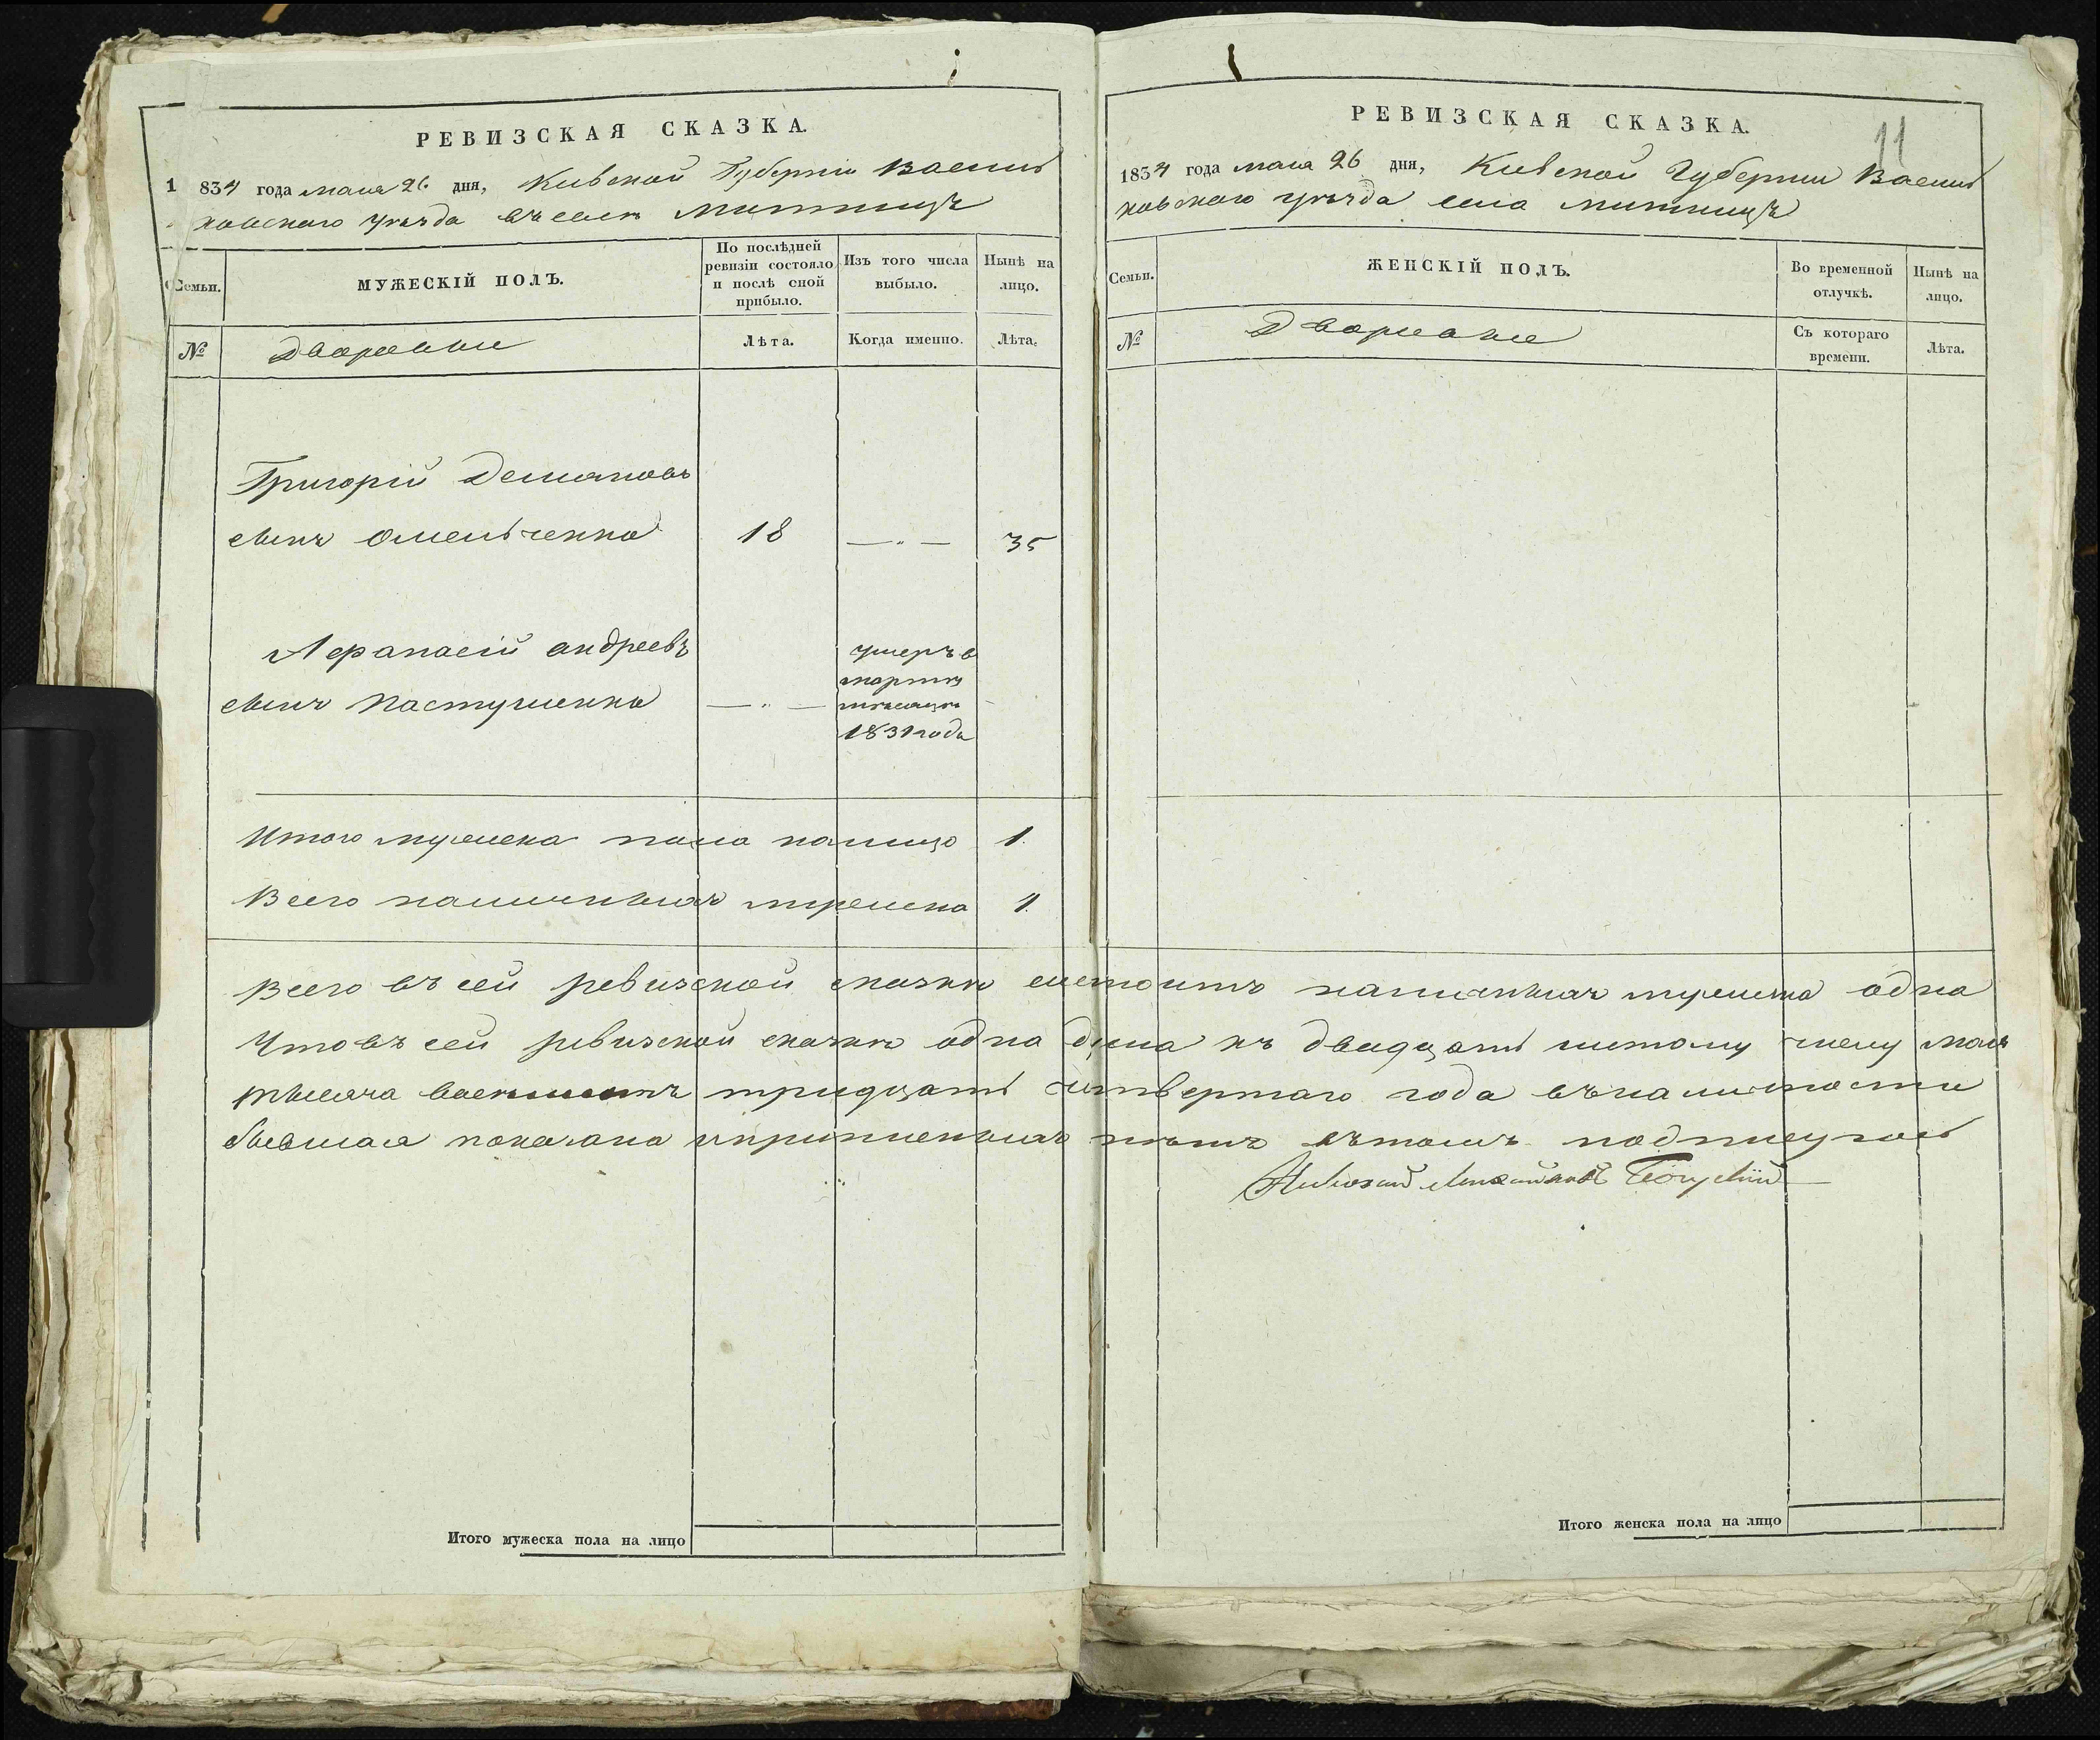 РЕВИЗСКАЯ СКАЗКА.
1834 года мая 26 дня, Киевской Губернiи Василь
ковскаго уезда въ селе Митницъ
Семьи.
МУЖЕСКІЙ ПОЛЪ.
По послѣдней ревизіи состояло и послѣ оной прибыло.
Изъ того числа выбыло.
Нынѣ на лицо.
№
Дворовые
Лѣта.
Когда именно.
Лѣта.
Григорій
сынъ Омельченко 18 —„— 35
Афанасій андреевъ
сынъ Пастушенко —„—
умеръ в
мартѣ
мѣсяцѣ
1831 года
Итого мужеска пола налицо 1.
Всего наличныхъ мужеска 1.
Всего въ сей ревизской сказкѣ состоитъ наличныхъ мужеска одна
Что въ сей ревизской сказкѣ одна душа къ двадцать шетому числу мая
тысяча тридцать четвертаго года въ наличности
бывшая показана и прописныхъ нѣтъ въ томъ подписуюсь
Итого мужеска пола на лицо
11
РЕВИЗСКАЯ СКАЗКА.
1834 года мая 26 дня, Киевской Губернии Василь
ковскаго уезда села Митницъ
Семьи.
ЖЕНСКІЙ ПОЛЪ.
Во временной отлучкѣ.
Нынѣ на лицо.
№
Дворовые
Съ котораго времени.
Лѣта.
Итого женска пола на лицо